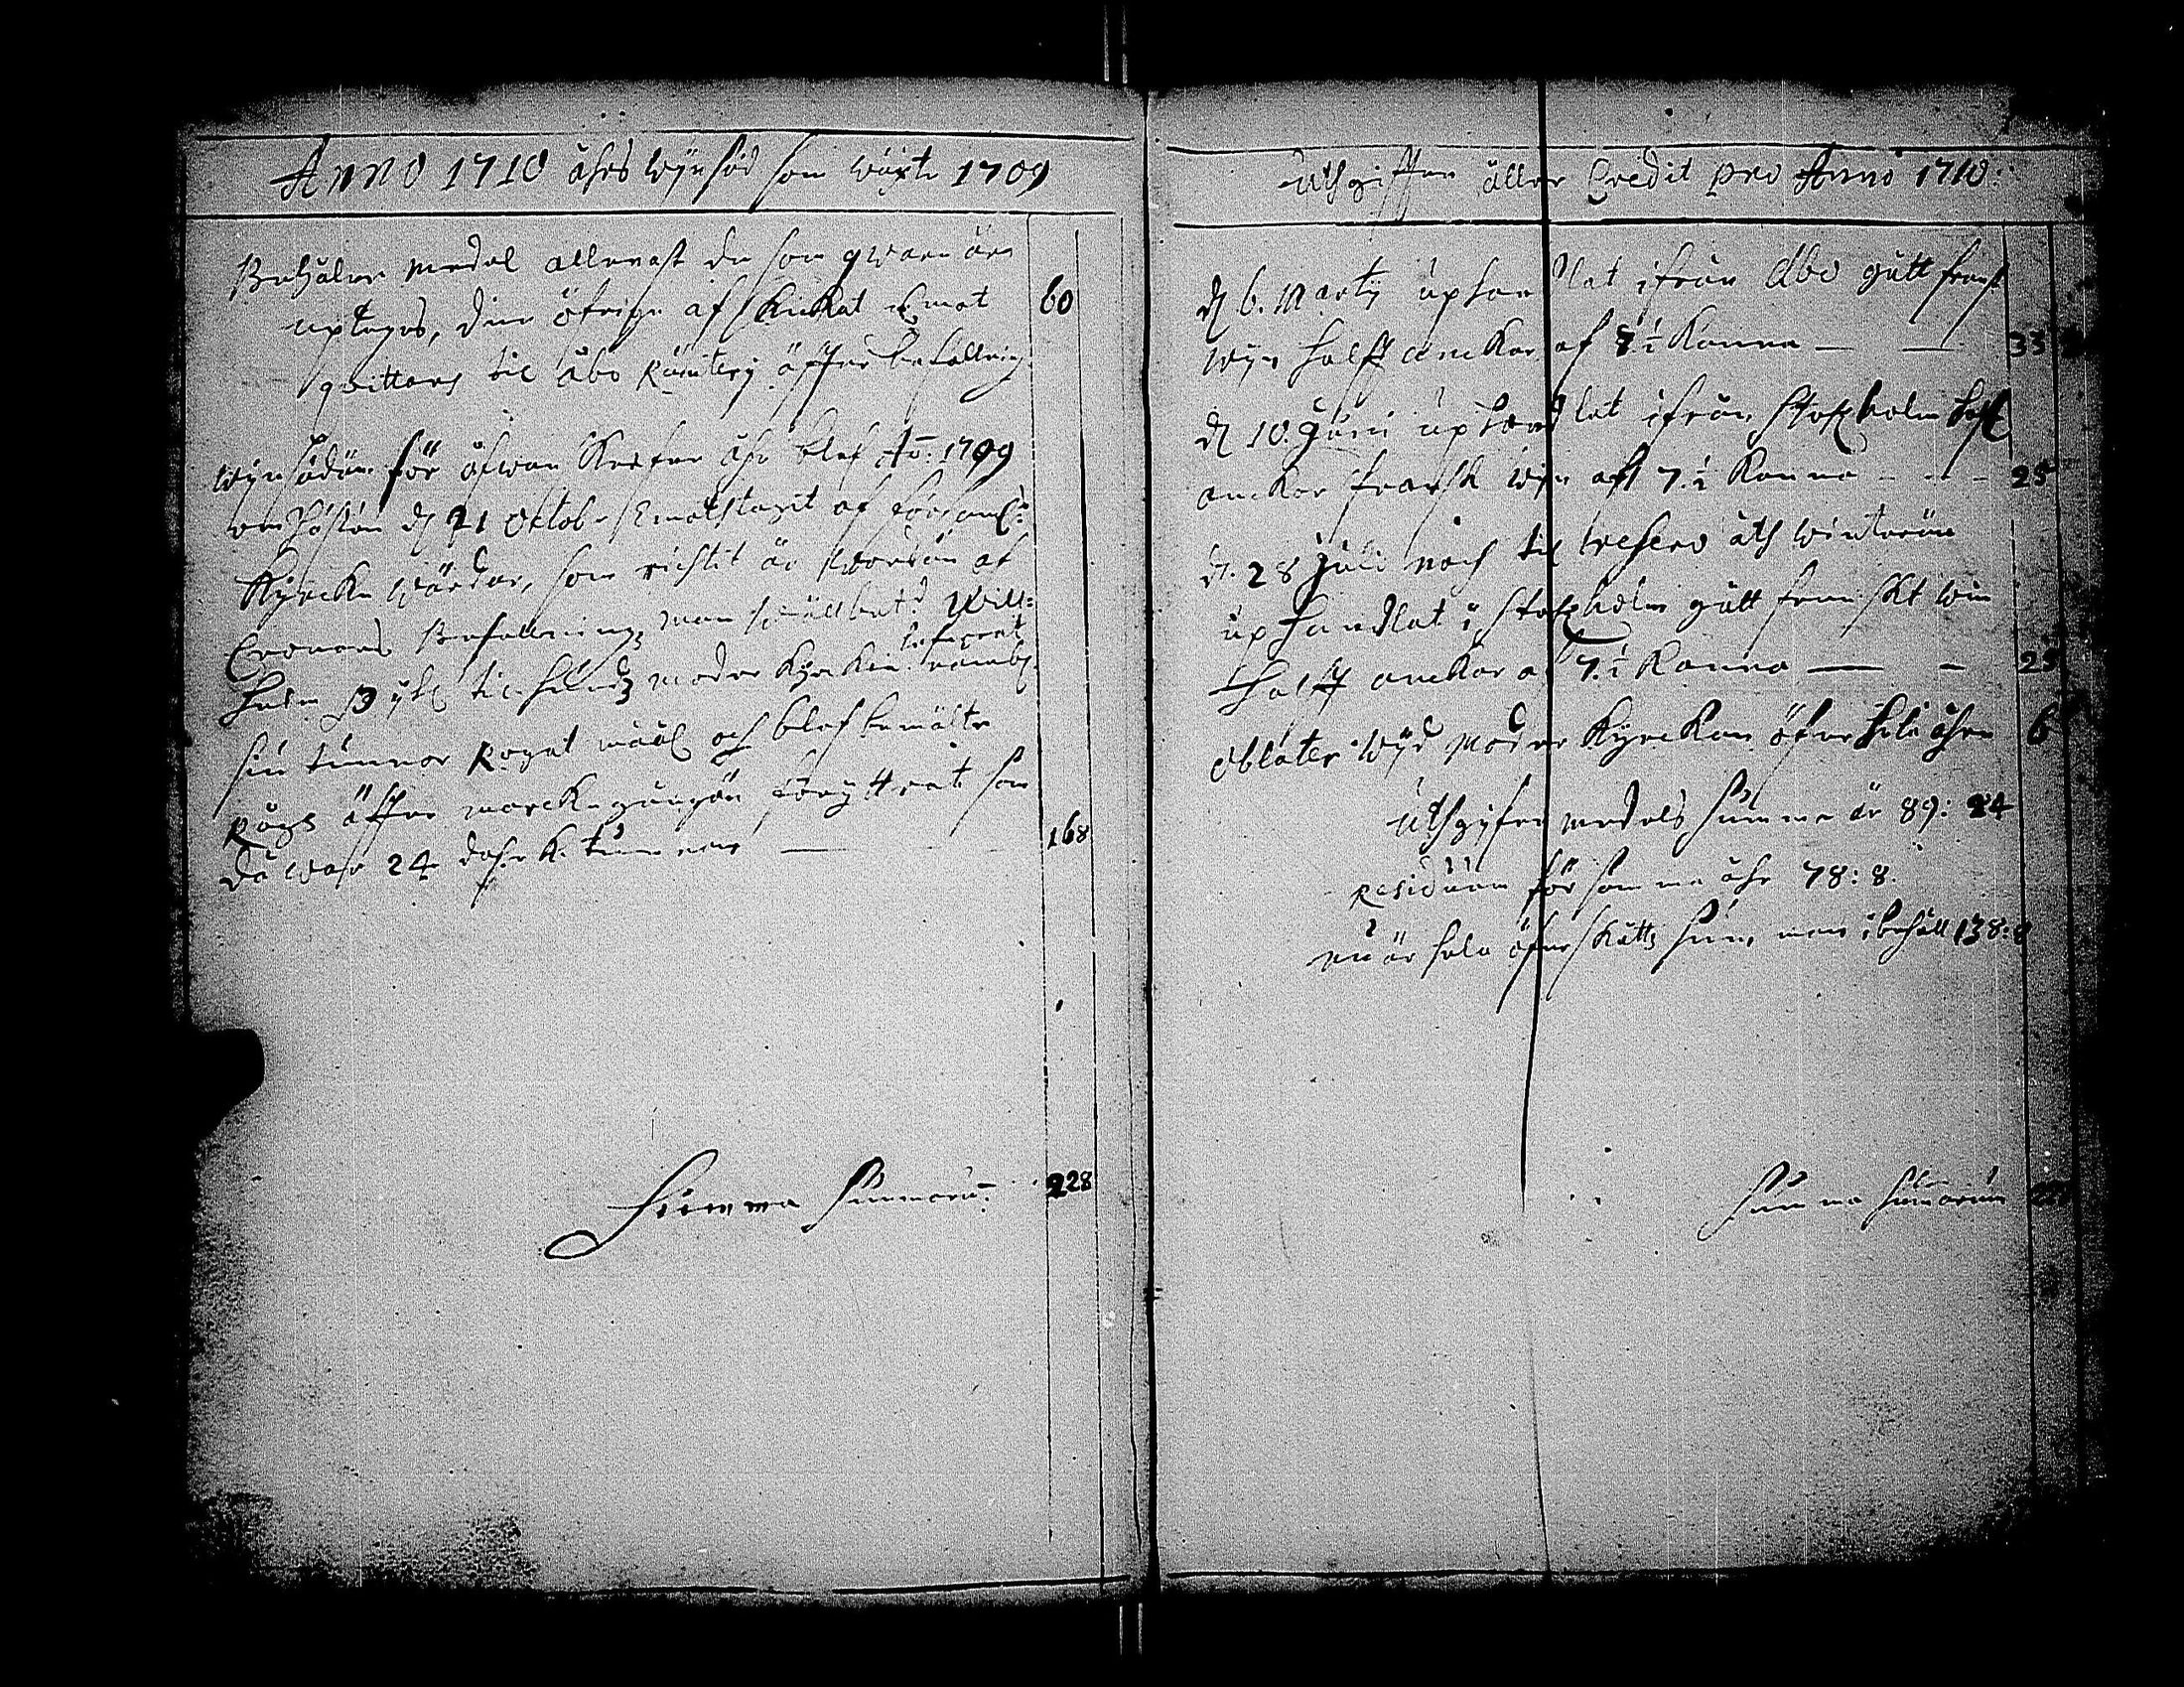 Anno 1710 åhrs wijnsäd som wäxte 1709
Behålne medel allenast de som qwara äre
uptages, dene öfrige afskickat emot 60
quittans til åbo Ränterij äffter befallning
wijnsäden för ofwan skrefne åhr blef Ao: 1709
om hösten d 21 Octobr emothtagit af församl:
Kyrckie wärdar, som richtit är worden af
Cronones Befallnings man wälbet:d Will:
helm tilhånds moder Kyrckin lefrerat
siu tunnor Rogat määl och blef bemälte
Rogh äffter marckegången förÿttrat som
då war 24 dahr K. tunnan 168
Summa Summaru: 228
Uthgiffter äller Credit pro Anno 1710:
d 6. Martij uphandlat ifrån Abo gått fransk
wijn halft anckar af 7.½ Kanna 33
d 10. Junii uphandlat ifrån Stockholm halft
anckar fransk wijn aff 7.½ Kanna 25
d. 28 Julii noch til reserv åth winteren
uphandlat i Stockholm gått franskt win
halfft anckar af 7.½ Kanna 25
Oblater wijd moder Kyrckan öfver hela åhret 6
Uthgifne medels summa är 89: 24
Residuum för samma åhr 78: 8.
nu är hela öfverskåtts summan i behåll 138: 8
Summa Summarum